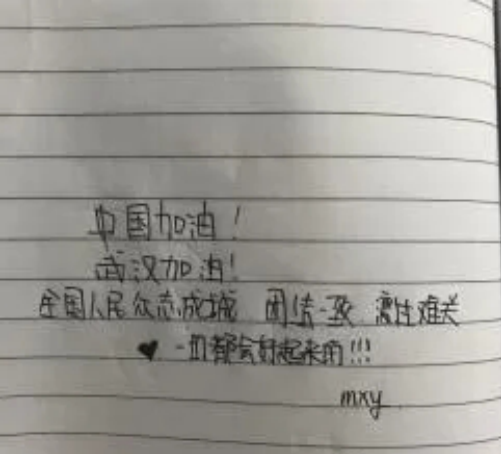 中国加油!
武汉加油!
全国人民众志成城 团结一致 难关
♥ 一切都会好起来的!!!
mxy